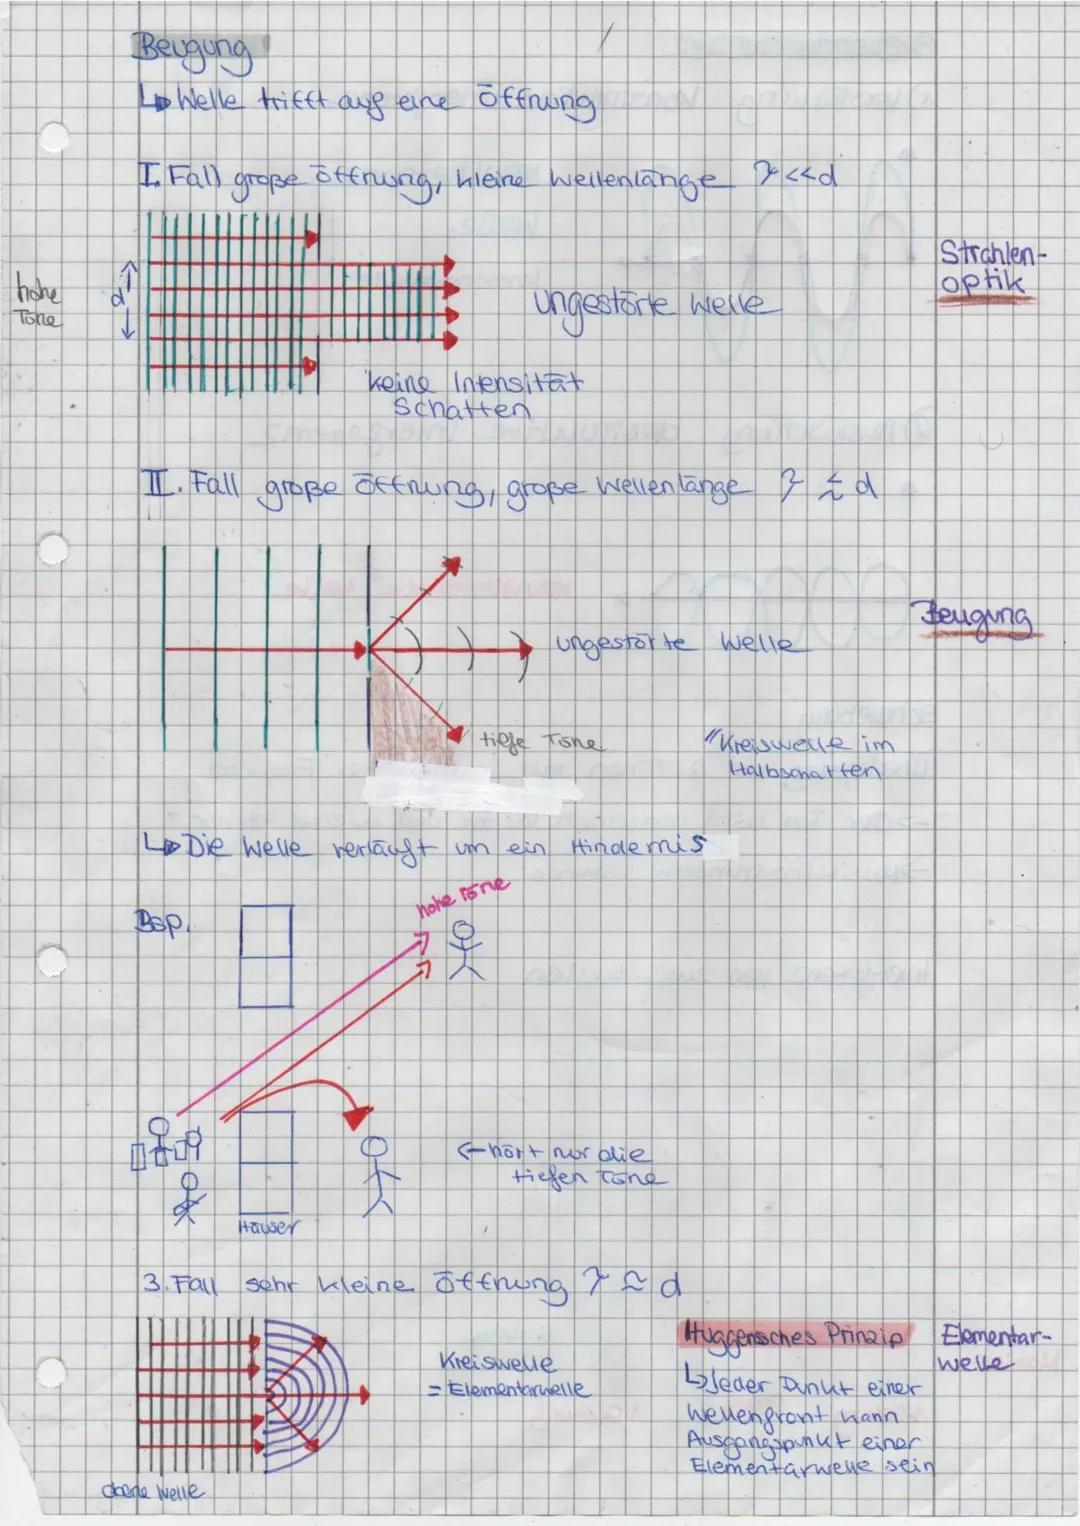 Beugung
↳ Welle trifft auf eine Öffnung
I. Fall große Öffnung, kleine Wellenlänge λ << d
Strahlen-
optik
hohe
Töne
d
ungestörte Welle
keine Intensität
Schatten
II. Fall große Öffnung, große Wellenlänge λ ≲ d
Beugung
ungestörte Welle
tiefe Töne
"Kreiswelle im
Halbschatten
↳ Die Welle verläuft um ein Hindernis
Bsp.
hohe Töne
← hört nur die
tiefen Töne
Häuser
3. Fall sehr kleine Öffnung λ ≈ d
Huggensches Prinzip
Elementar-
welle
Kreiswelle
= Elementarwelle
↳ Jeder Punkt einer
Wellenfront kann
Ausgangspunkt einer
Elementarwelle sein
ebene Welle